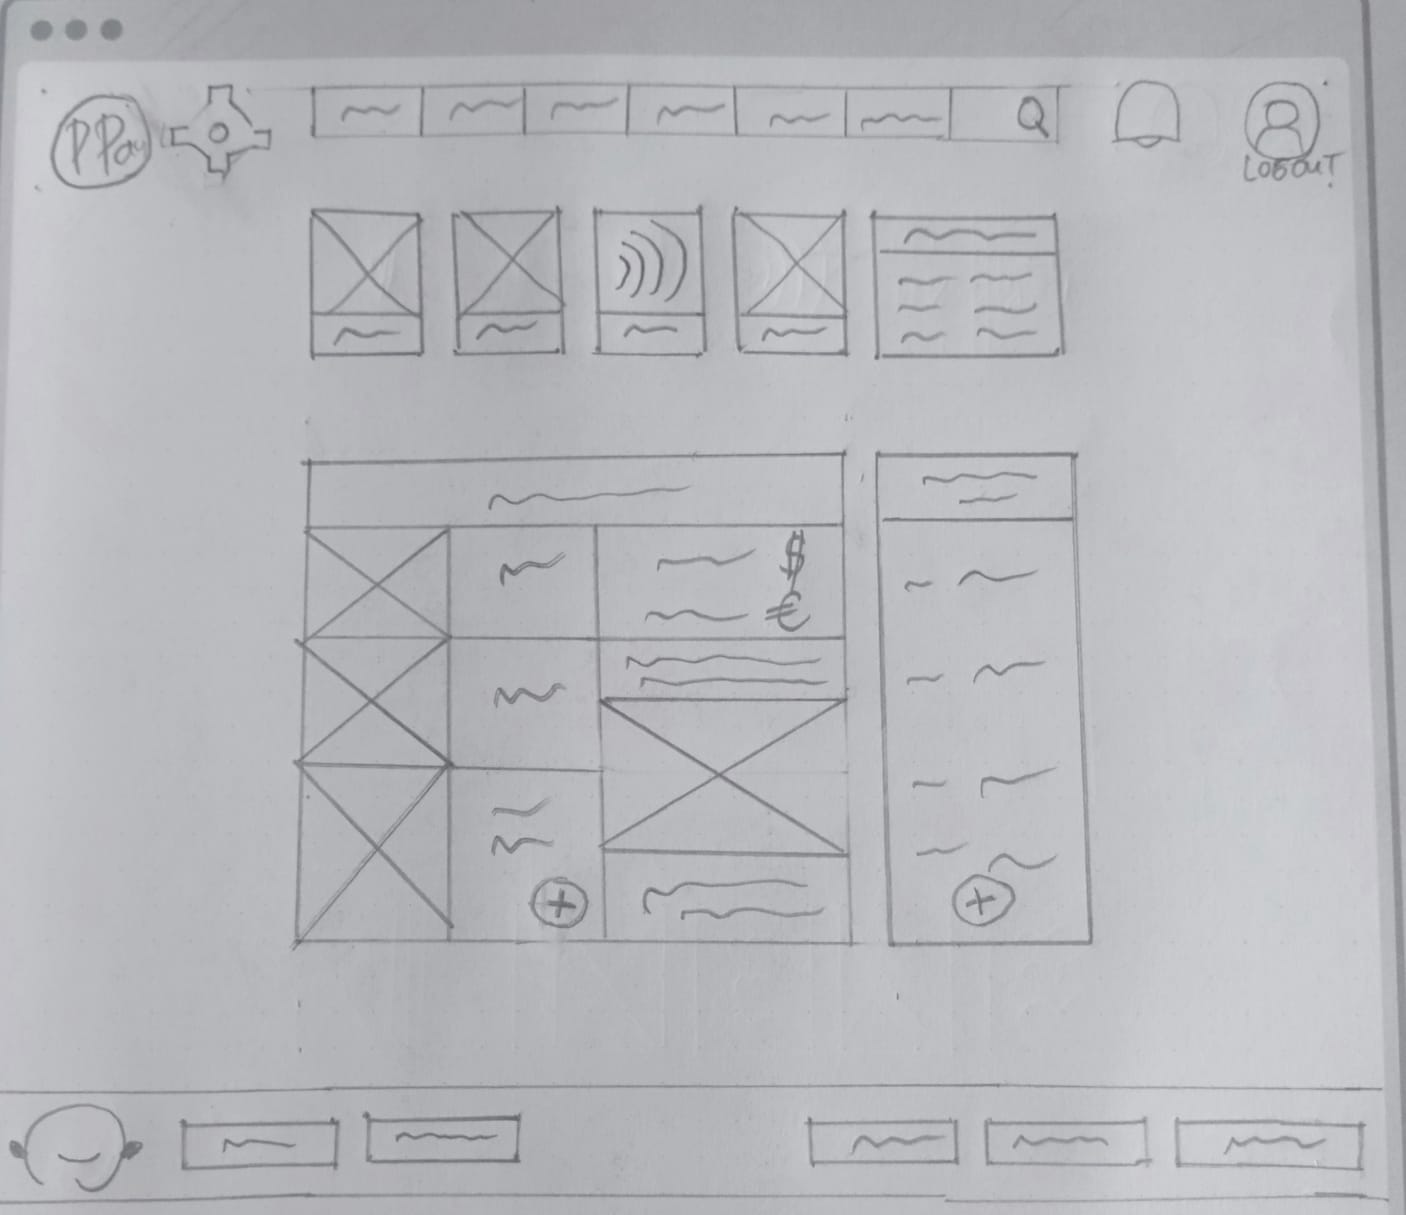 PPay
LOGOUT
$
€